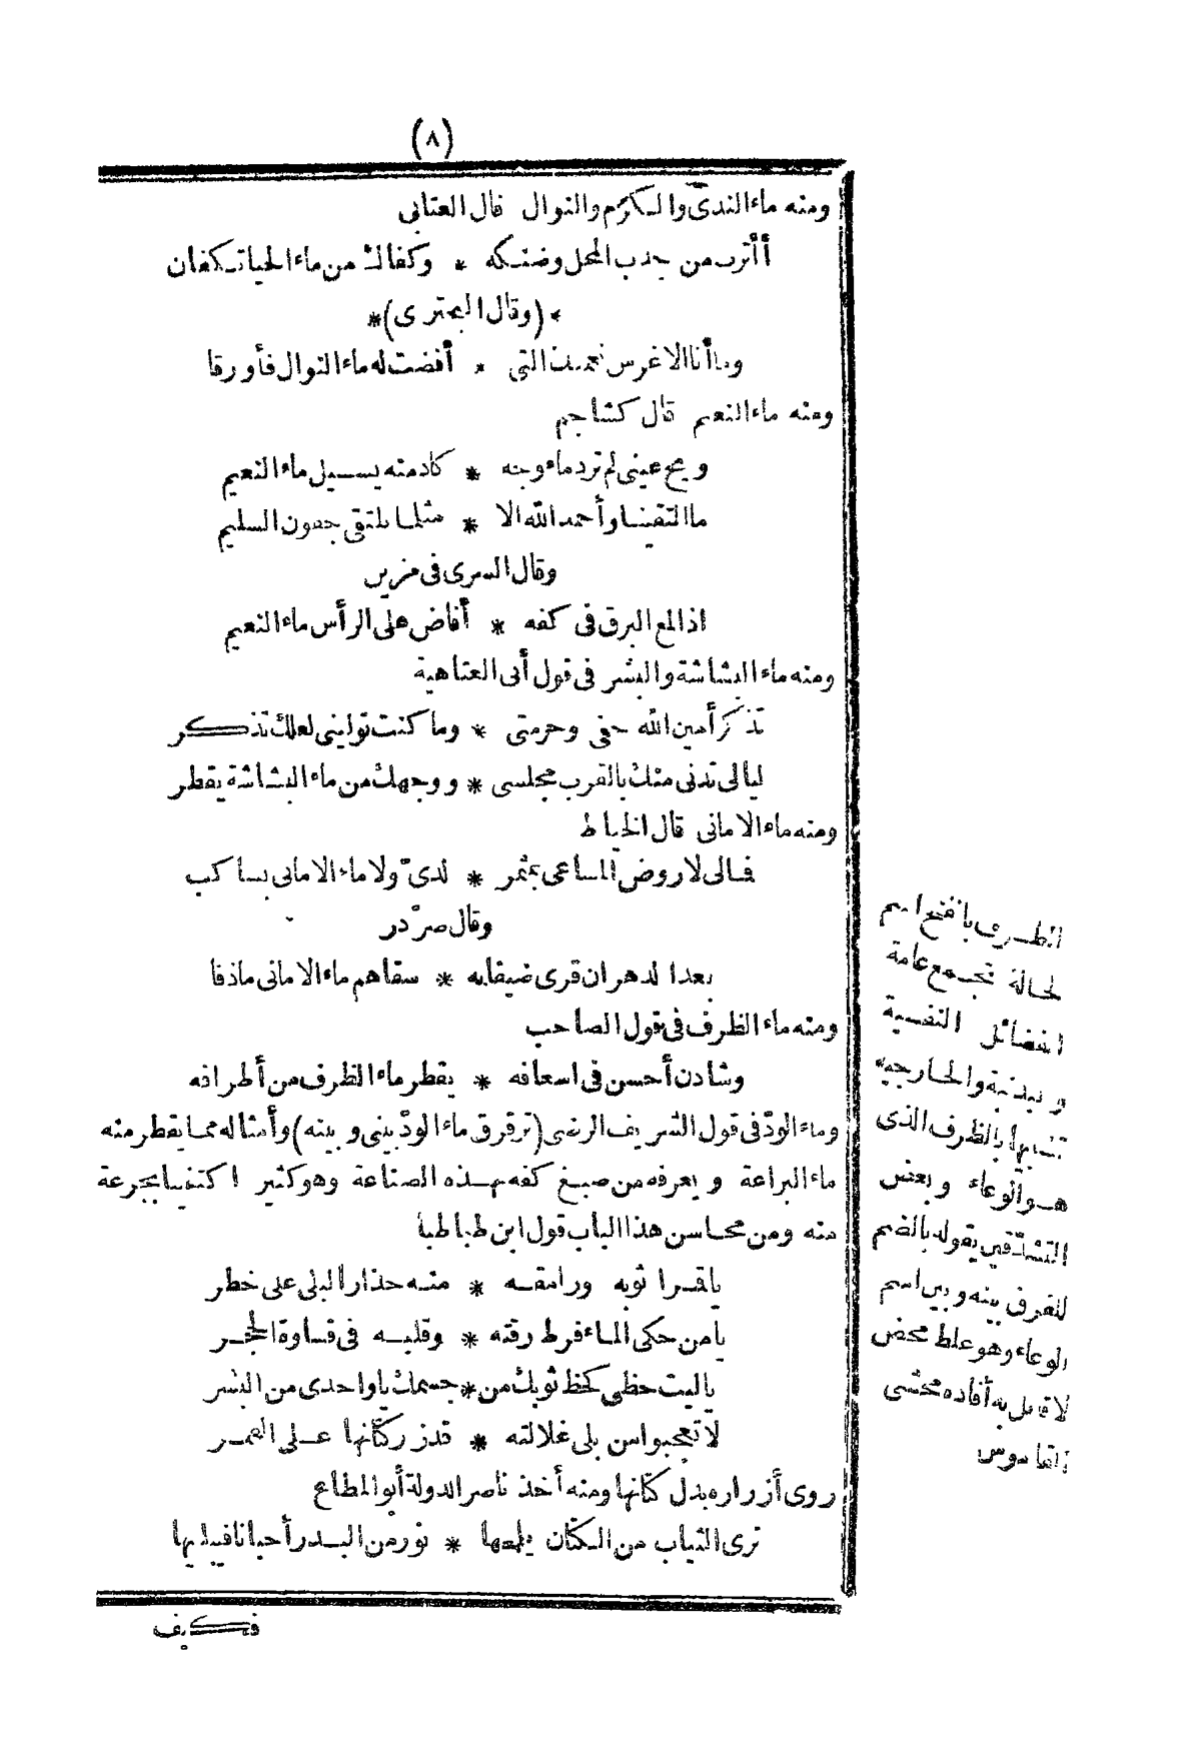 (٨)
ومنه ماء الندىّ والكرم والنوال قال العتابى
أأترب من جدب المحل وضنكه * وكفاك من ماء الحيا تكفان
*(وقال البحترى)*
وما أنا الا غرس نعمتك التى * أفضت له ماء النوال فأورقا
ومنه ماء النعيم قال كشاجم
ويح عينى لم ترد ماء وجنه * كاد منه يسيل ماء النعيم
ما التقينا وأحمد الله الا * مثلما يلتقى جفون السليم
وقال السرى فى مزين
اذا لمع البرق فى كفه * أفاض على الرأس ماء النعيم
ومنه ماء البشاشة والبشر فى قول أبى العتاهية
تذكر أمين الله حقى وحرمتى * وما كنت تولينى لعلك تذكر
ليالى تدنى منك بالقرب مجلسى * ووجهك من ماء البشاشة يقطر
ومنه ماء الامانى قال الخياط
فمالى لا روض المساعى بمثمر * لدىّ ولا ماء الامانى بساكب
وقال صرّ در
بعدا لدهر ان قرى ضيفا به * سقاهم ماء الامانى ماذقا
ومنه ماء الظرف فى قول الصاحب
وشادن أحسن فى اسعافه * يقطر ماء الظرف من أطرافه
وماء الودّ فى قول الشريف الرضى (ترقرق ماء الودّ بينى وبينه) وأمثاله مما يقطر منه
ماء البراعة ويعرفه من صبغ كفه بهذه الصناعة وهو كثير اكتفينا بجرعة
منه ومن محاسن هذا الباب قول ابن طباطبا
ياقمرا ثوبه ورامقه * منه حذار البلى على خطر
يامن حكى الماء فرط رقته * وقلبه فى قساوة الحجر
ياليت حظى كحظ ثوبك من * جسمك ياواحدى من البشر
لا تعجبوا من بلى غلالته * قد زر كتانها على القمر
روى أزراره بدل كتانها ومنه أخذ ناصر الدولة أبو المطاع
ترى الثياب من الكتان يلمحها * نور من البدر أحيانا فيبليها
فكيف
الظرف بالفتح اسم
لحالة تجمع عامة
الفضائل النفسية
والبدنية والخارجية
تشبيها بالظرف الذى
هو الوعاء وبعض
المتشدّقين يقوله بالضم
للفرق بينه وبين اسم
الوعاء وهو غلط محض
لا قائل به أفاده محشى
القاموس